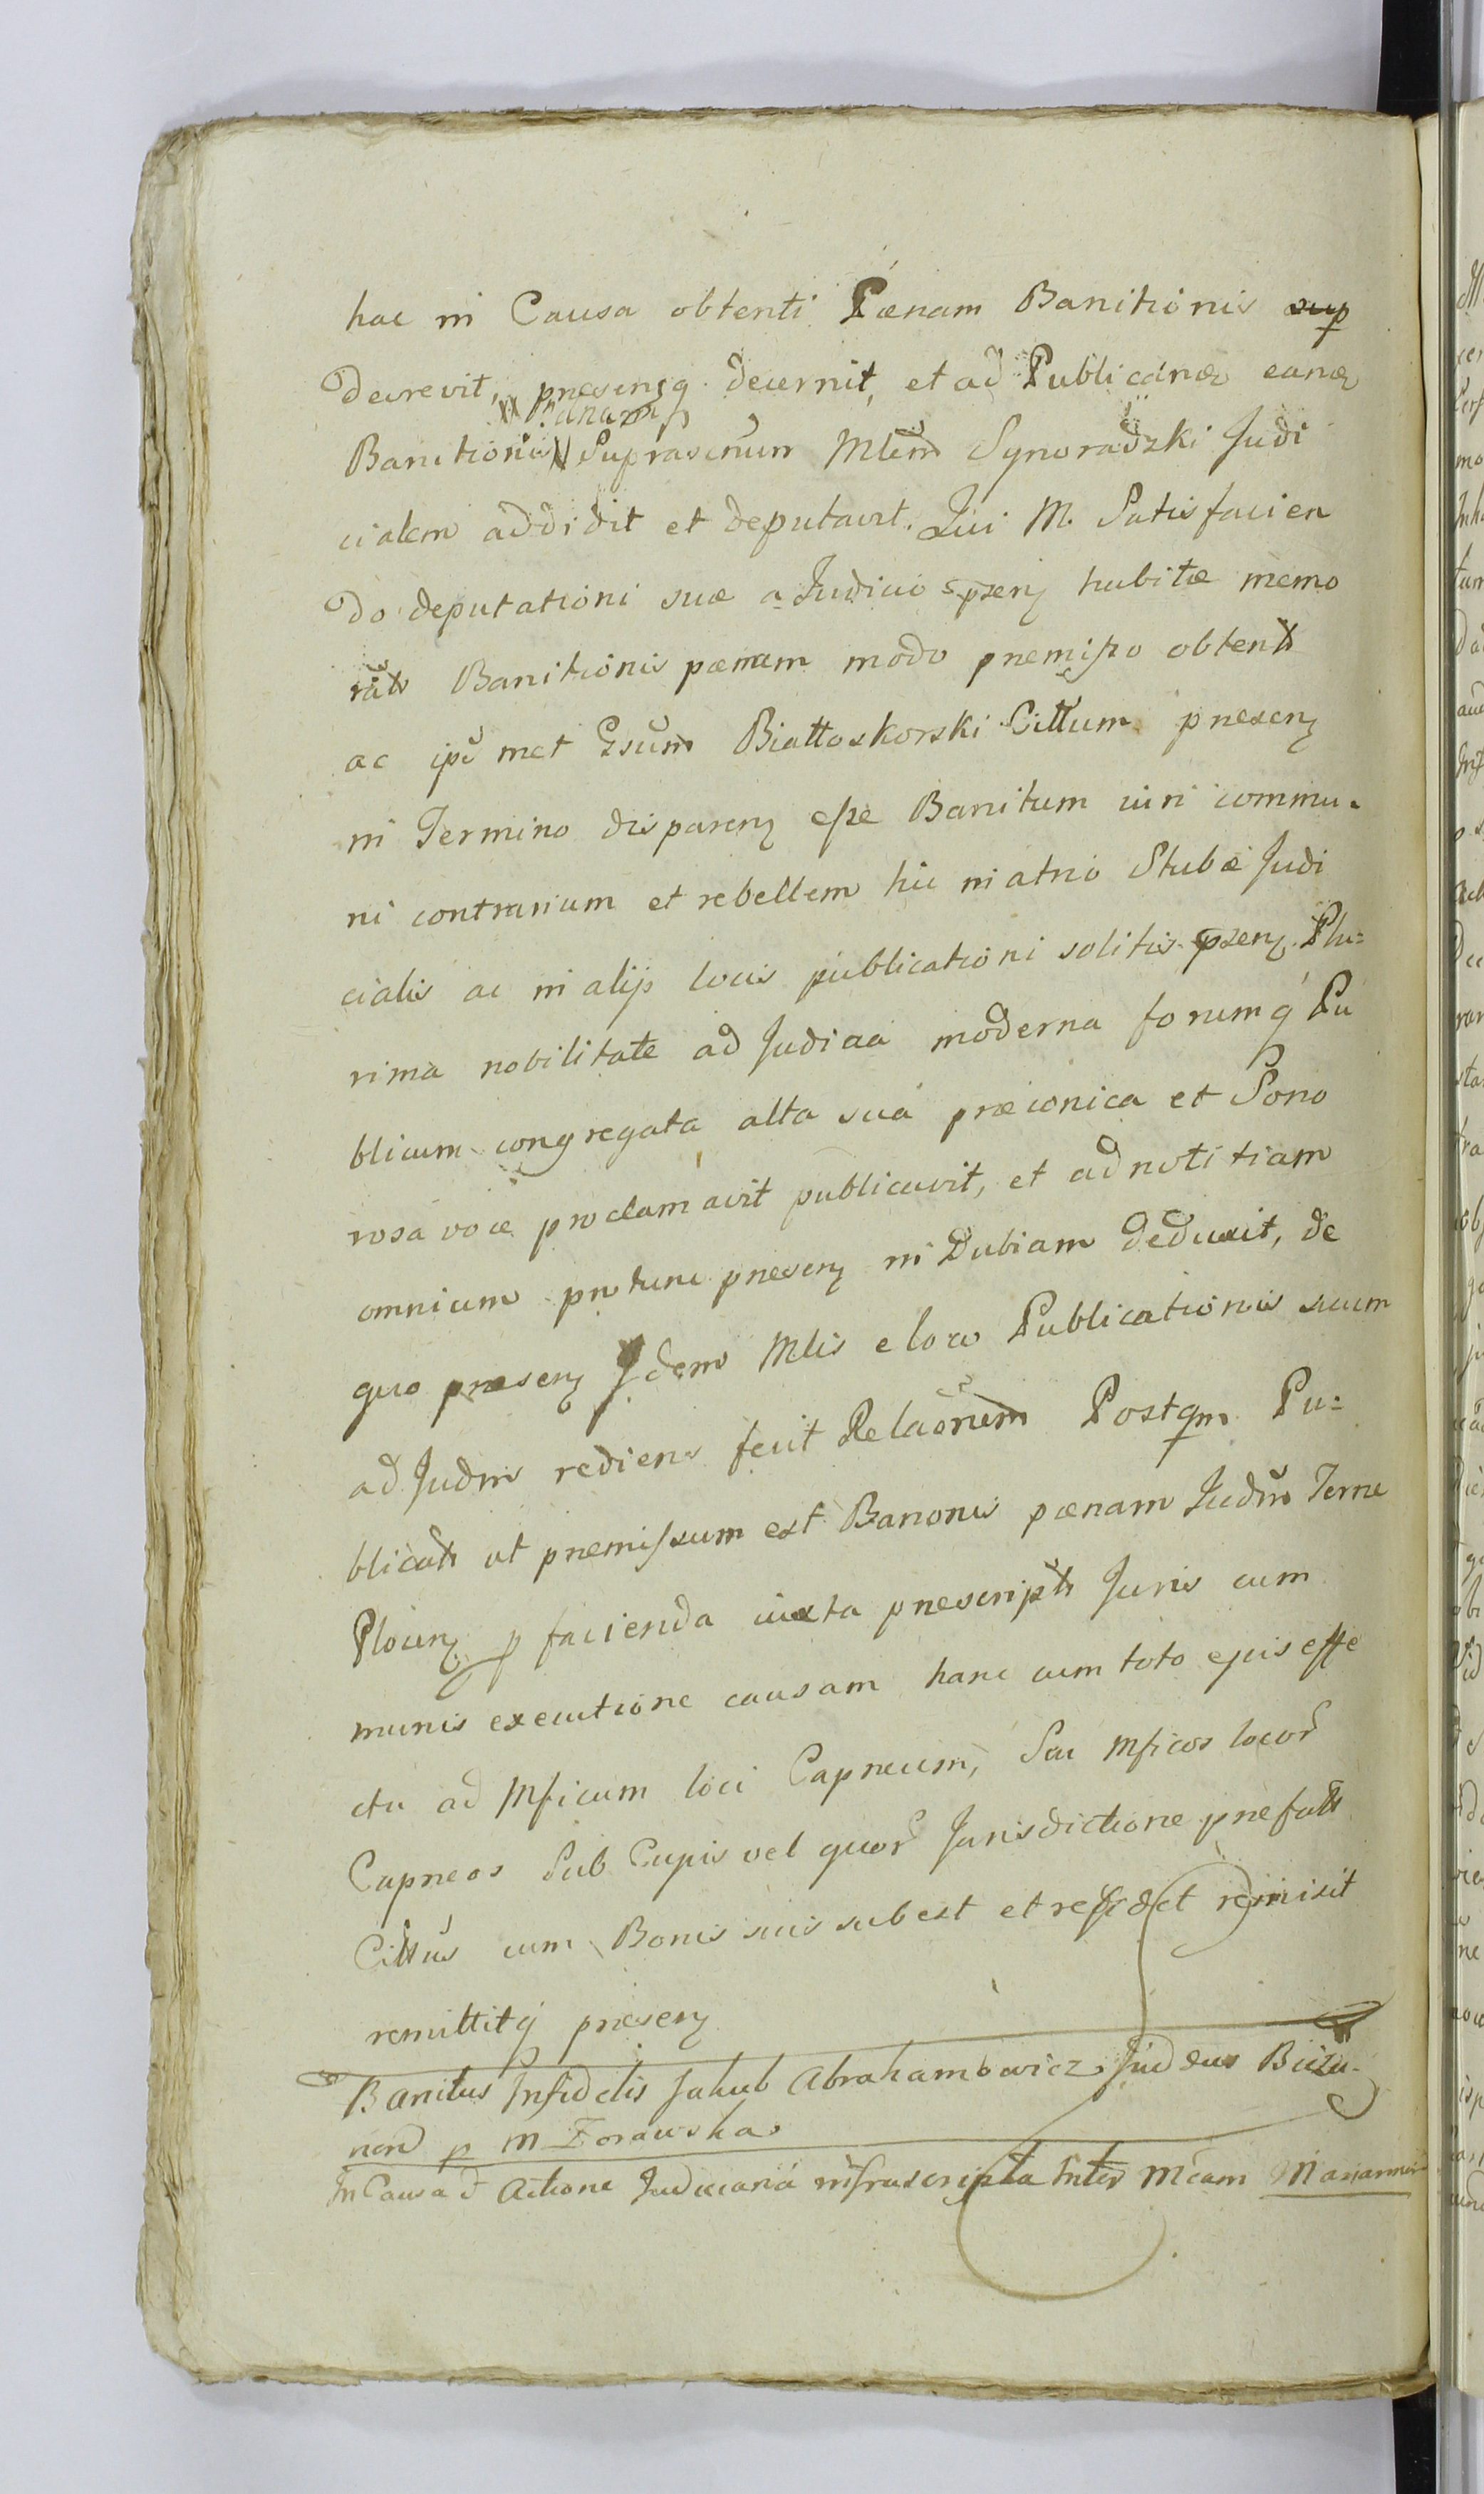 hac in Causa obtenti Pœnam Banitionis sup
decrevit, presensq. decernit, et ad Publicandæ eandæ
Banitionis XX Pœnam Suprascriūm Mlem̃ Synoradzki Judi
cialem addidit et deputavit. Qui M. Satisfacien
do deputationi suæ a Judicio p̃senȝ habitæ memo
ratȝ Banitionis pœnam modo premisso obtentȝ
ac ipũ met Gsum̃ Białłoskorski Cittum presenȝ
in Termino disparenȝ esse Banitum iuri commu-
ni contrarium et rebellem hic in atrio Stubæ Judi
cialis ac in alijs locis publicationi solitis p̃senȝ Plu=
rima nobilitate ad Judicia moderna forumq́ Pu
blicum congregata alta sua præconica et Sono
rosa voce proclamavit publicavit, et ad notitiam
omnium pro tunc presenȝ in Dubiam deduxit, de
quo presenȝ Idem Mlis e loco Publicationis suum
ad Judm rediens fecit Relaõnem Postqm Pu=
blicatȝ ut premissum est Banonis pœnam Judm̃ Terrae
Plocenȝ p facienda iuxta prescriptȝ Juris cum
munis executione causam hanc cum toto ejus effe
ctu ad Mficum loci Capneum, Seu Mficos locor̃
Capneos Sub Cujus vel quor̃ Jurisdictione prefatȝ
Cittus cum Bonis suis subest et residet remisit
remittitq́ presenȝ
Banitus Infidelis Jakub Abrahamowicz Judæus Biezu-
nen̄ p M Zorawska
In Causa & Actione Judiciaria infrascripta Inter Mcam Mariannam